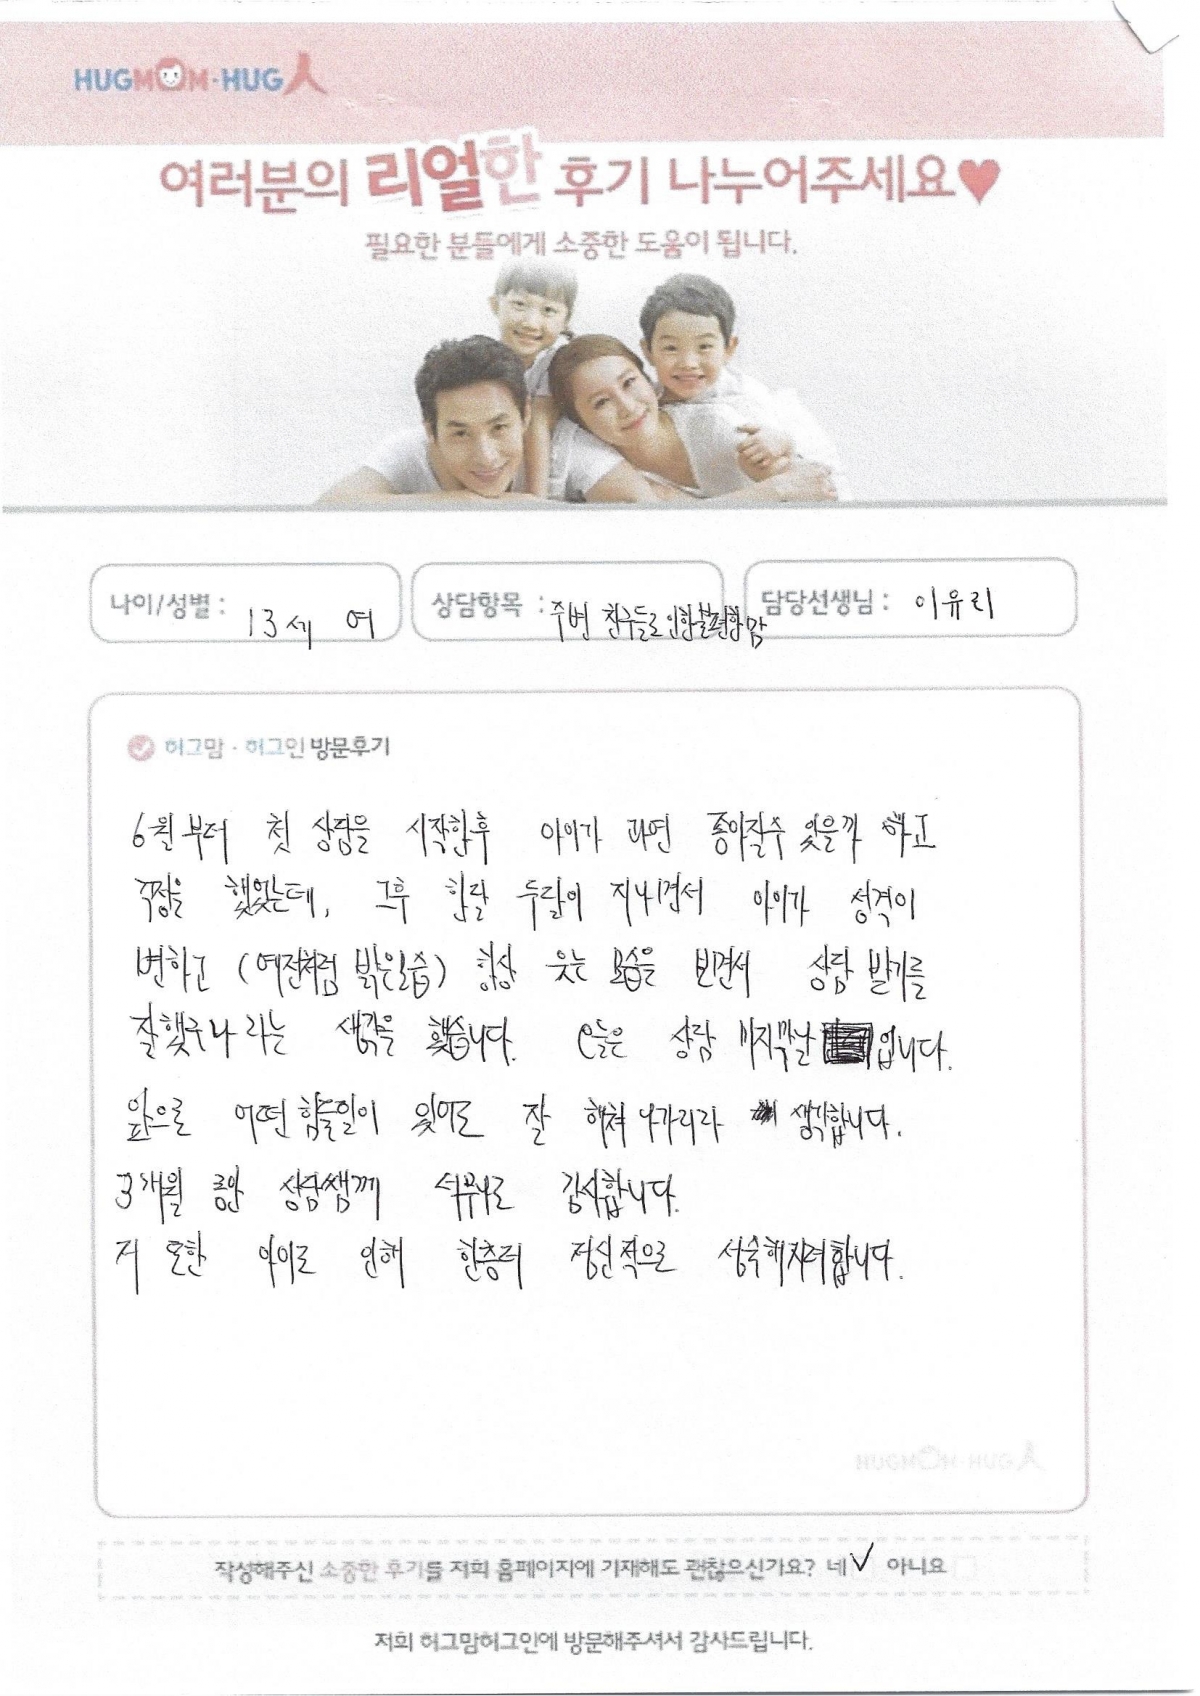 HUGMOM·HUG人
여러분의 리얼한 후기 나누어주세요♥
필요한 분들에게 소중한 도움이 됩니다.
나이/성별 : 13세 여
상담항목 : 주변 친구들로 인한 불편한 맘
담당선생님 : 이유리
허그맘·허그인 방문후기
6월부터 첫 상담을 시작한후 아이가 과연 좋아질수 있을까 하고
걱정을 했었는데, 그후 한달 두달이 지나면서 아이가 성격이
변하고 (예전처럼 밝은모습) 항상 웃는 모습을 보면서 상담 받기를
잘했구나 라는 생각을 했습니다. 오늘은 상담 마지막날 입니다.
앞으로 어떤 힘들일이 있어도 잘 헤쳐 나가리라 생각합니다.
3개월 동안 상담쌤께 감사합니다.
저 또한 아이로 인해 한층더 정신적으로 성숙해지려합니다.
HUGMOM·HUG人
작성해주신 소중한 후기를 저희 홈페이지에 기재해도 괜찮으신가요? 네 ✓ 아니요
저희 허그맘허그인에 방문해주셔서 감사드립니다.